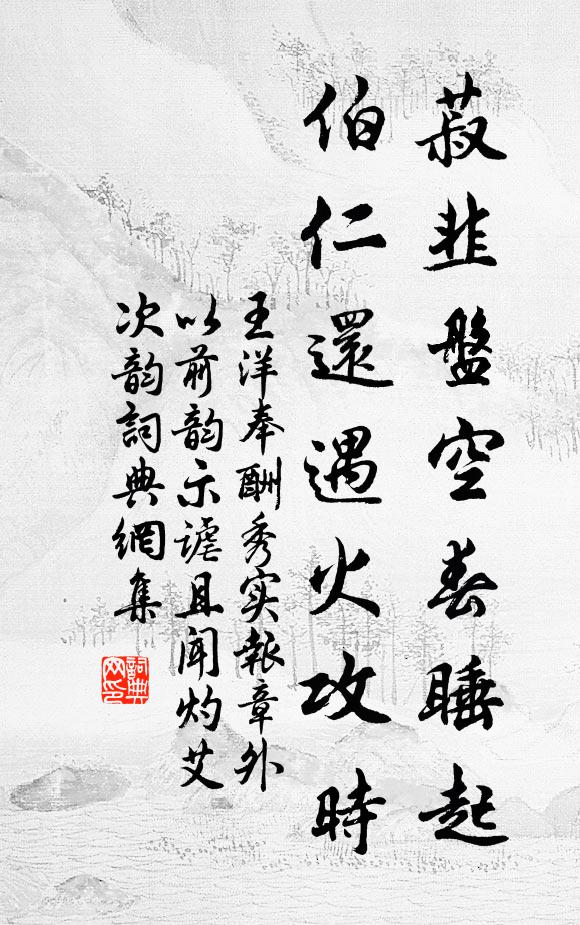 菽韭盤空春睡起
伯仁還遇火攻時
王洋奉酬秀实報章外
以前韵示謔且聞灼艾
次韵詞典網集
詞典网印